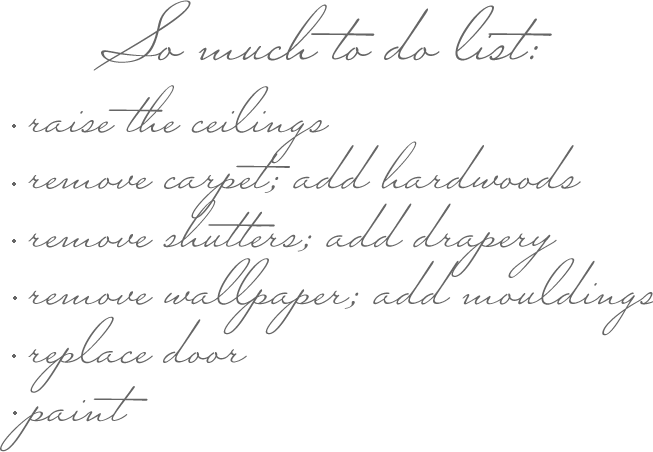 So much to do list:
· raise the ceilings
· remove carpet; add hardwoods
· remove shutters; add drapery
· remove wallpaper; add mouldings
· replace door
· paint